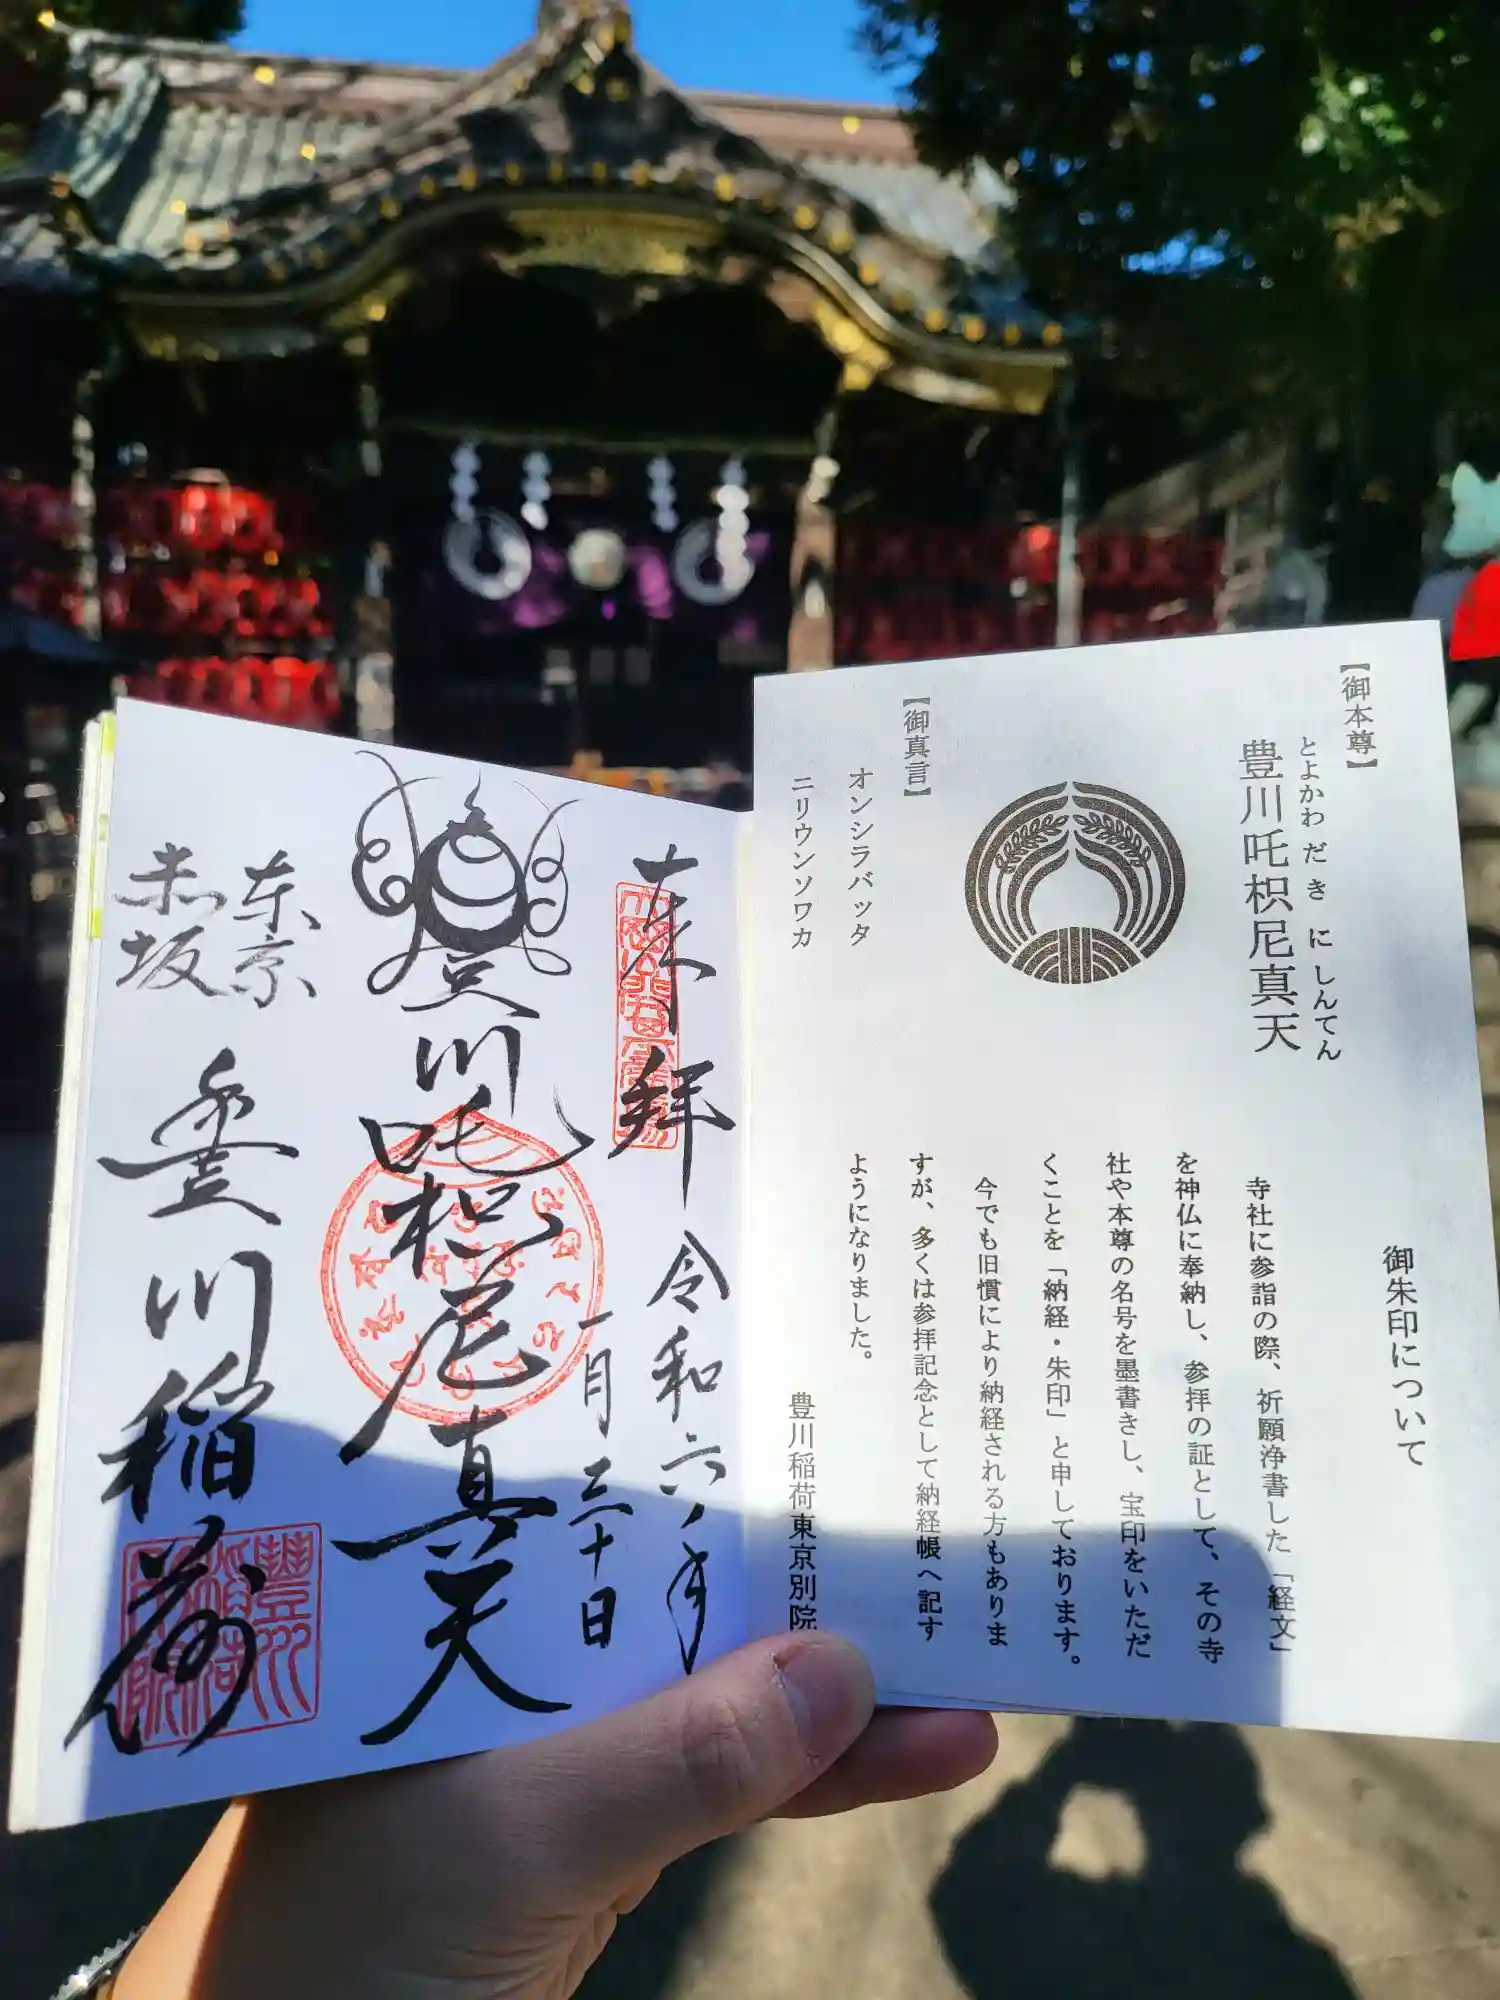 【御本尊】
とよかわだきにしんてん
豊川吒枳尼真天
【御真言】
オンシラバッタ
ニリウンソワカ
御朱印について
寺社に参詣の際、祈願浄書した「経文」
を神仏に奉納し、参拝の証として、その寺
社や本尊の名号を墨書きし、宝印をいただ
くことを「納経・朱印」と申しております。
今でも旧慣により納経される方もありま
すが、多くは参拝記念として納経帳へ記す
ようになりました。
豊川稲荷東京別院
奉拝
令和六年
一月三十日
豊川吒枳尼真天
東京
赤坂
豊川稲荷